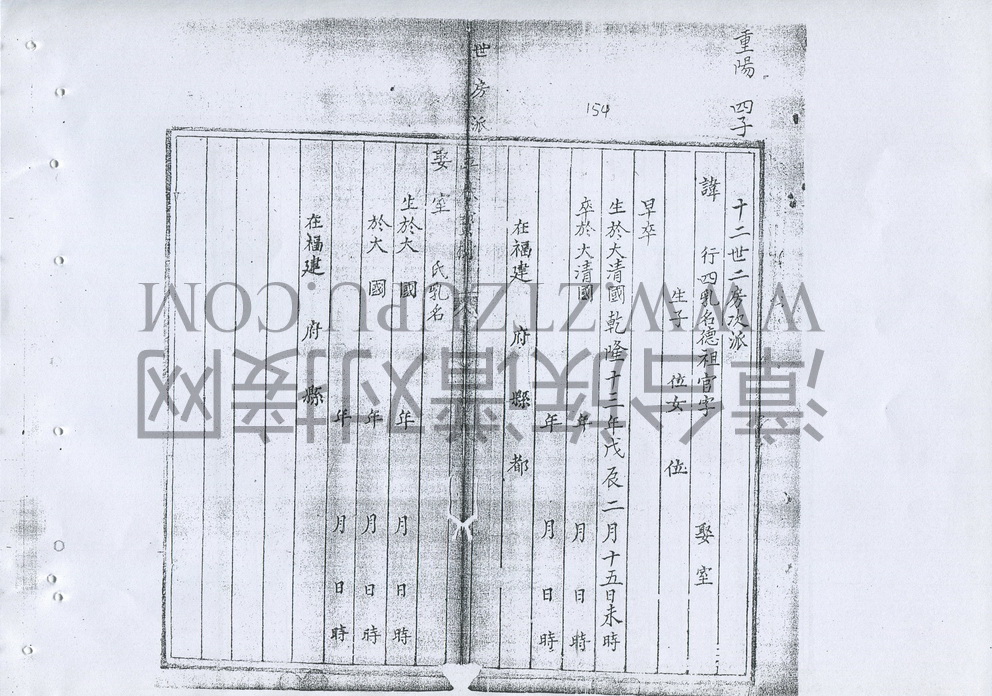 重陽 四子
154
十二世二房次派
諱 行四乳名德祖官字 娶室
生子 位女 位
早卒
生於大清國乾隆十三年戊辰二月十五日未時
卒於大清國 年 月 日 時
年 月 日 時
在福建 府 縣 都
世房派
娶室 氏乳名
生於大 國 年 月 日 時
於大 國 年 月 日 時
年 月 日 時
在福建 府 縣
漳台族谱对接网
WWW.ZTZUPU.COM